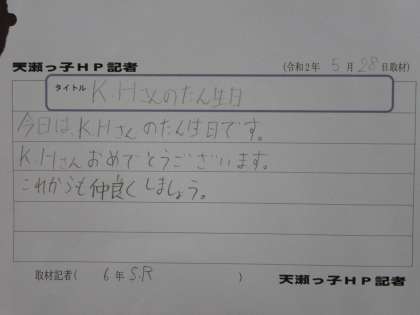 天瀬っ子HP記者 (令和2年 5月28日取材)
タイトル K.Hさんのたん生日
今日は、K.Hさんのたん生日です。
K.Hさんおめでとうございます。
これからも仲良くしましょう。
取材記者( 6年 S.R ) 天瀬っ子HP記者